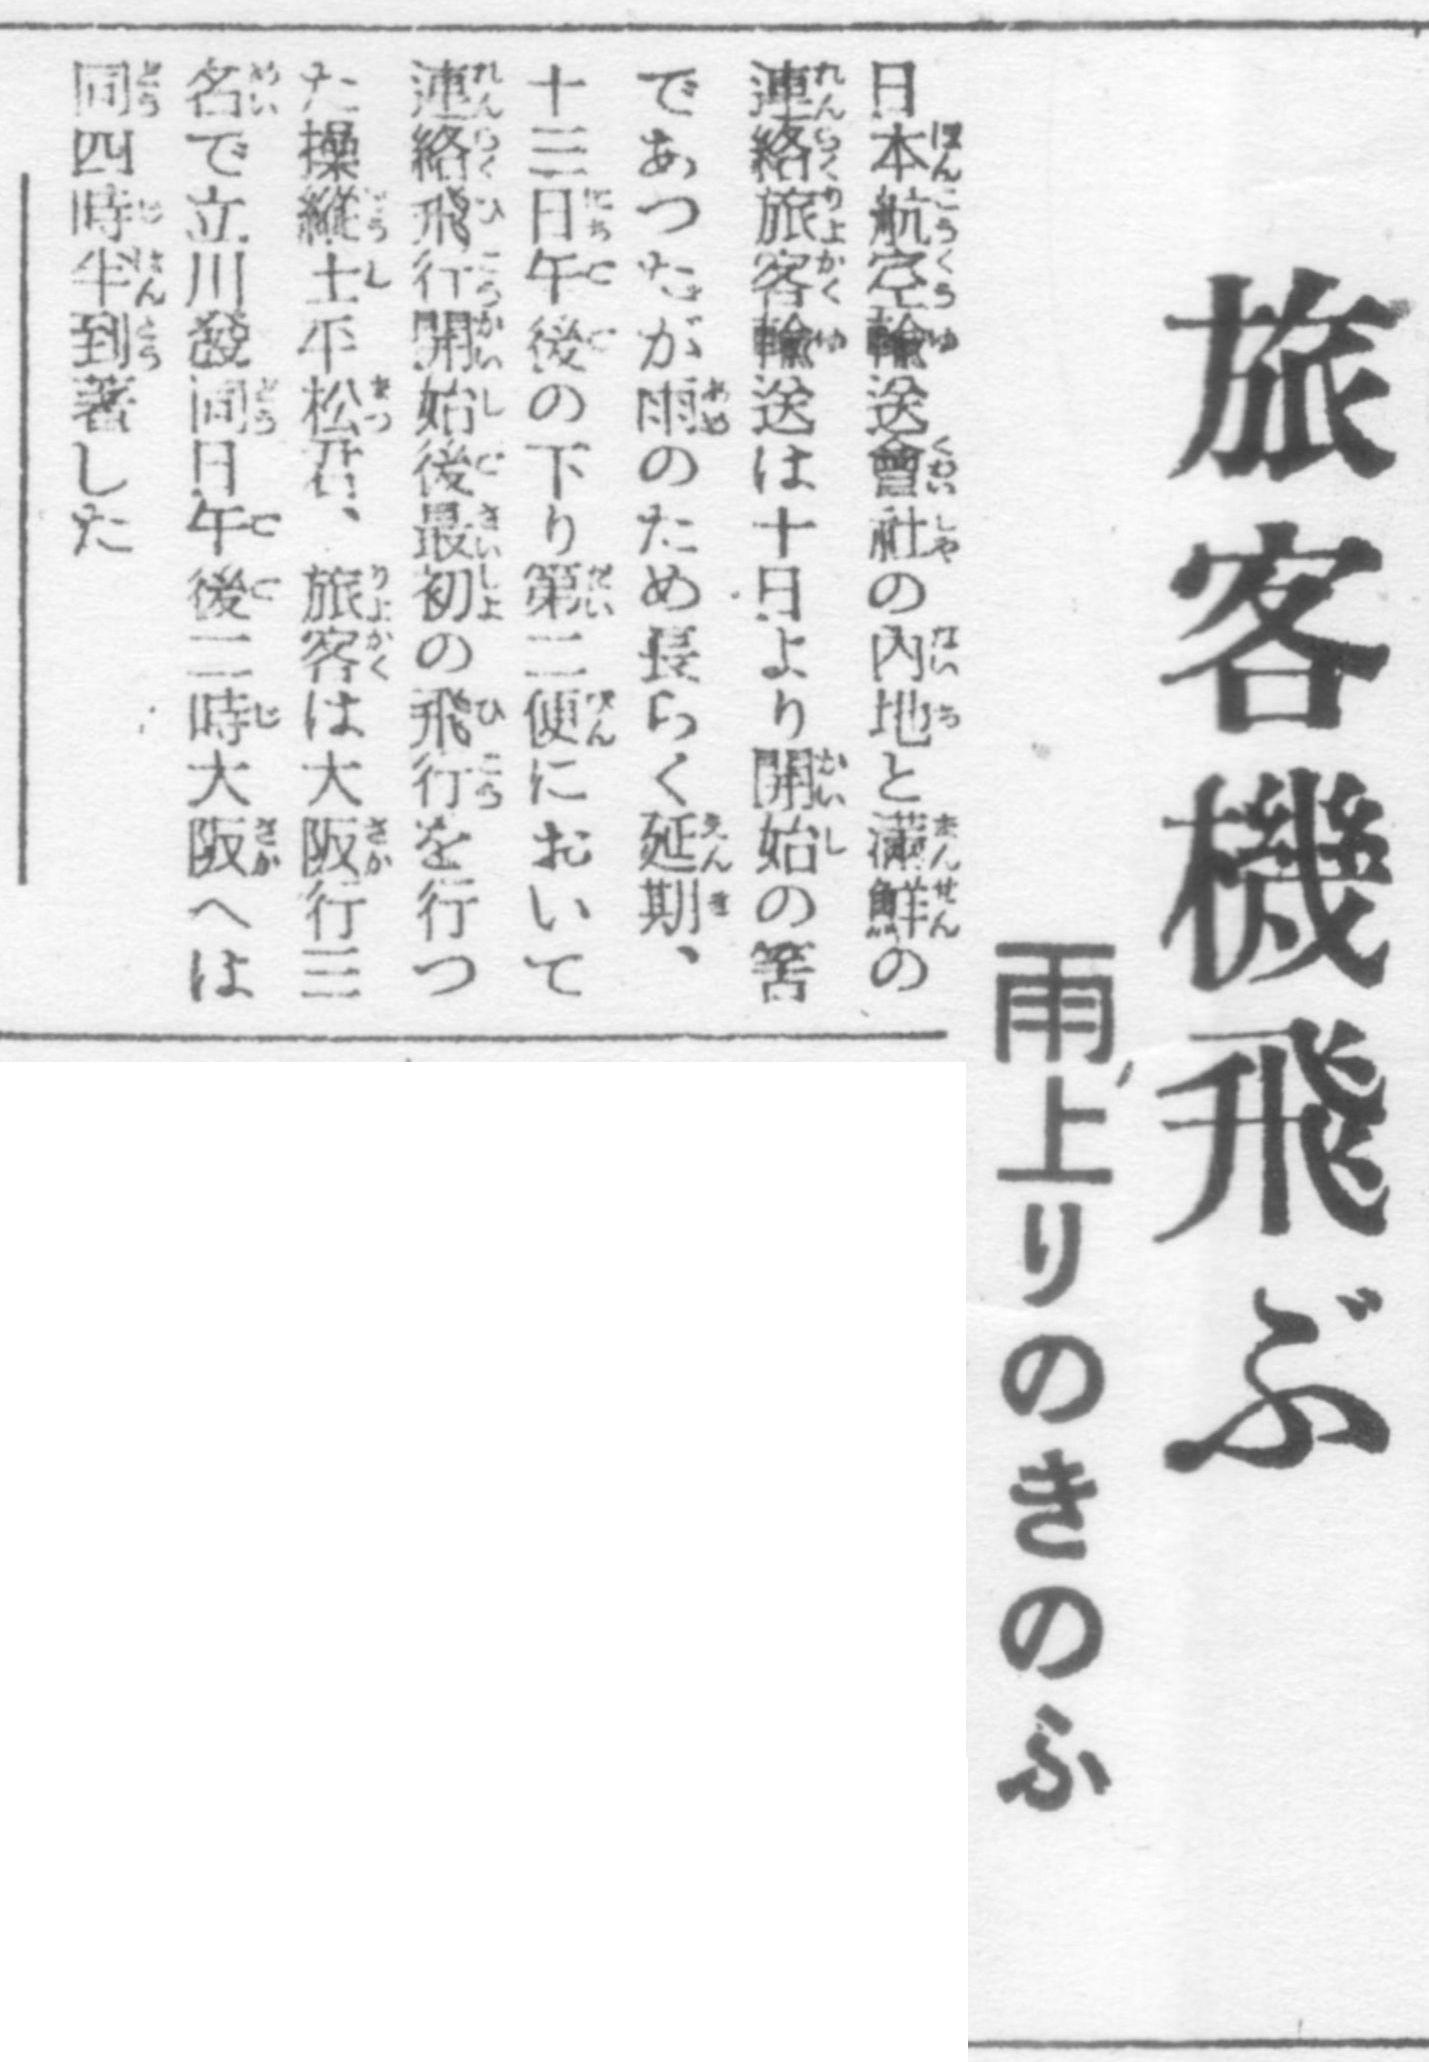 旅客機飛ぶ
雨上りのきのふ
日本航空輸送會社の內地と滿鮮の
連絡旅客輸送は十日より開始の筈
であつたが雨のため長らく延期、
十三日午後の下り第二便において
連絡飛行開始後最初の飛行を行つ
た操縱士平松君、旅客は大阪行三
名で立川發同日午後二時大阪へは
同四時半到著した